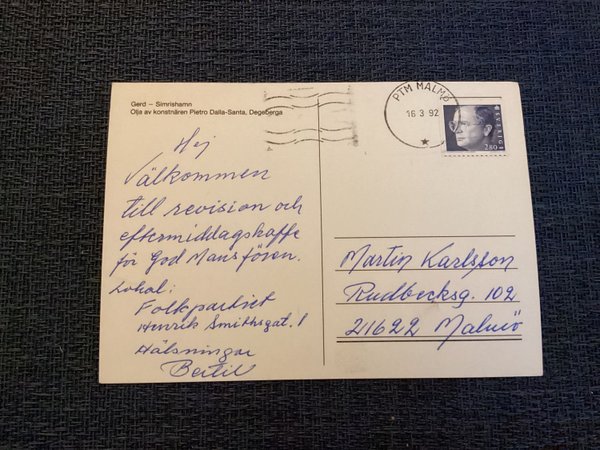 Gerd – Simrishamn
Olja av konstnären Pietro Dalla-Santa, Degeberga
Hej
Välkommen
till revision och
eftermiddagskaffe
för God Mans fören.
Lokal:
Folkpartiet
Henrik Smithsgat. 1
Hälsningar
Bertil
PTM MALMÖ
16 3 92
SVERIGE
280
Martin Karlsson
Rudbecksg. 102
21622 Malmö